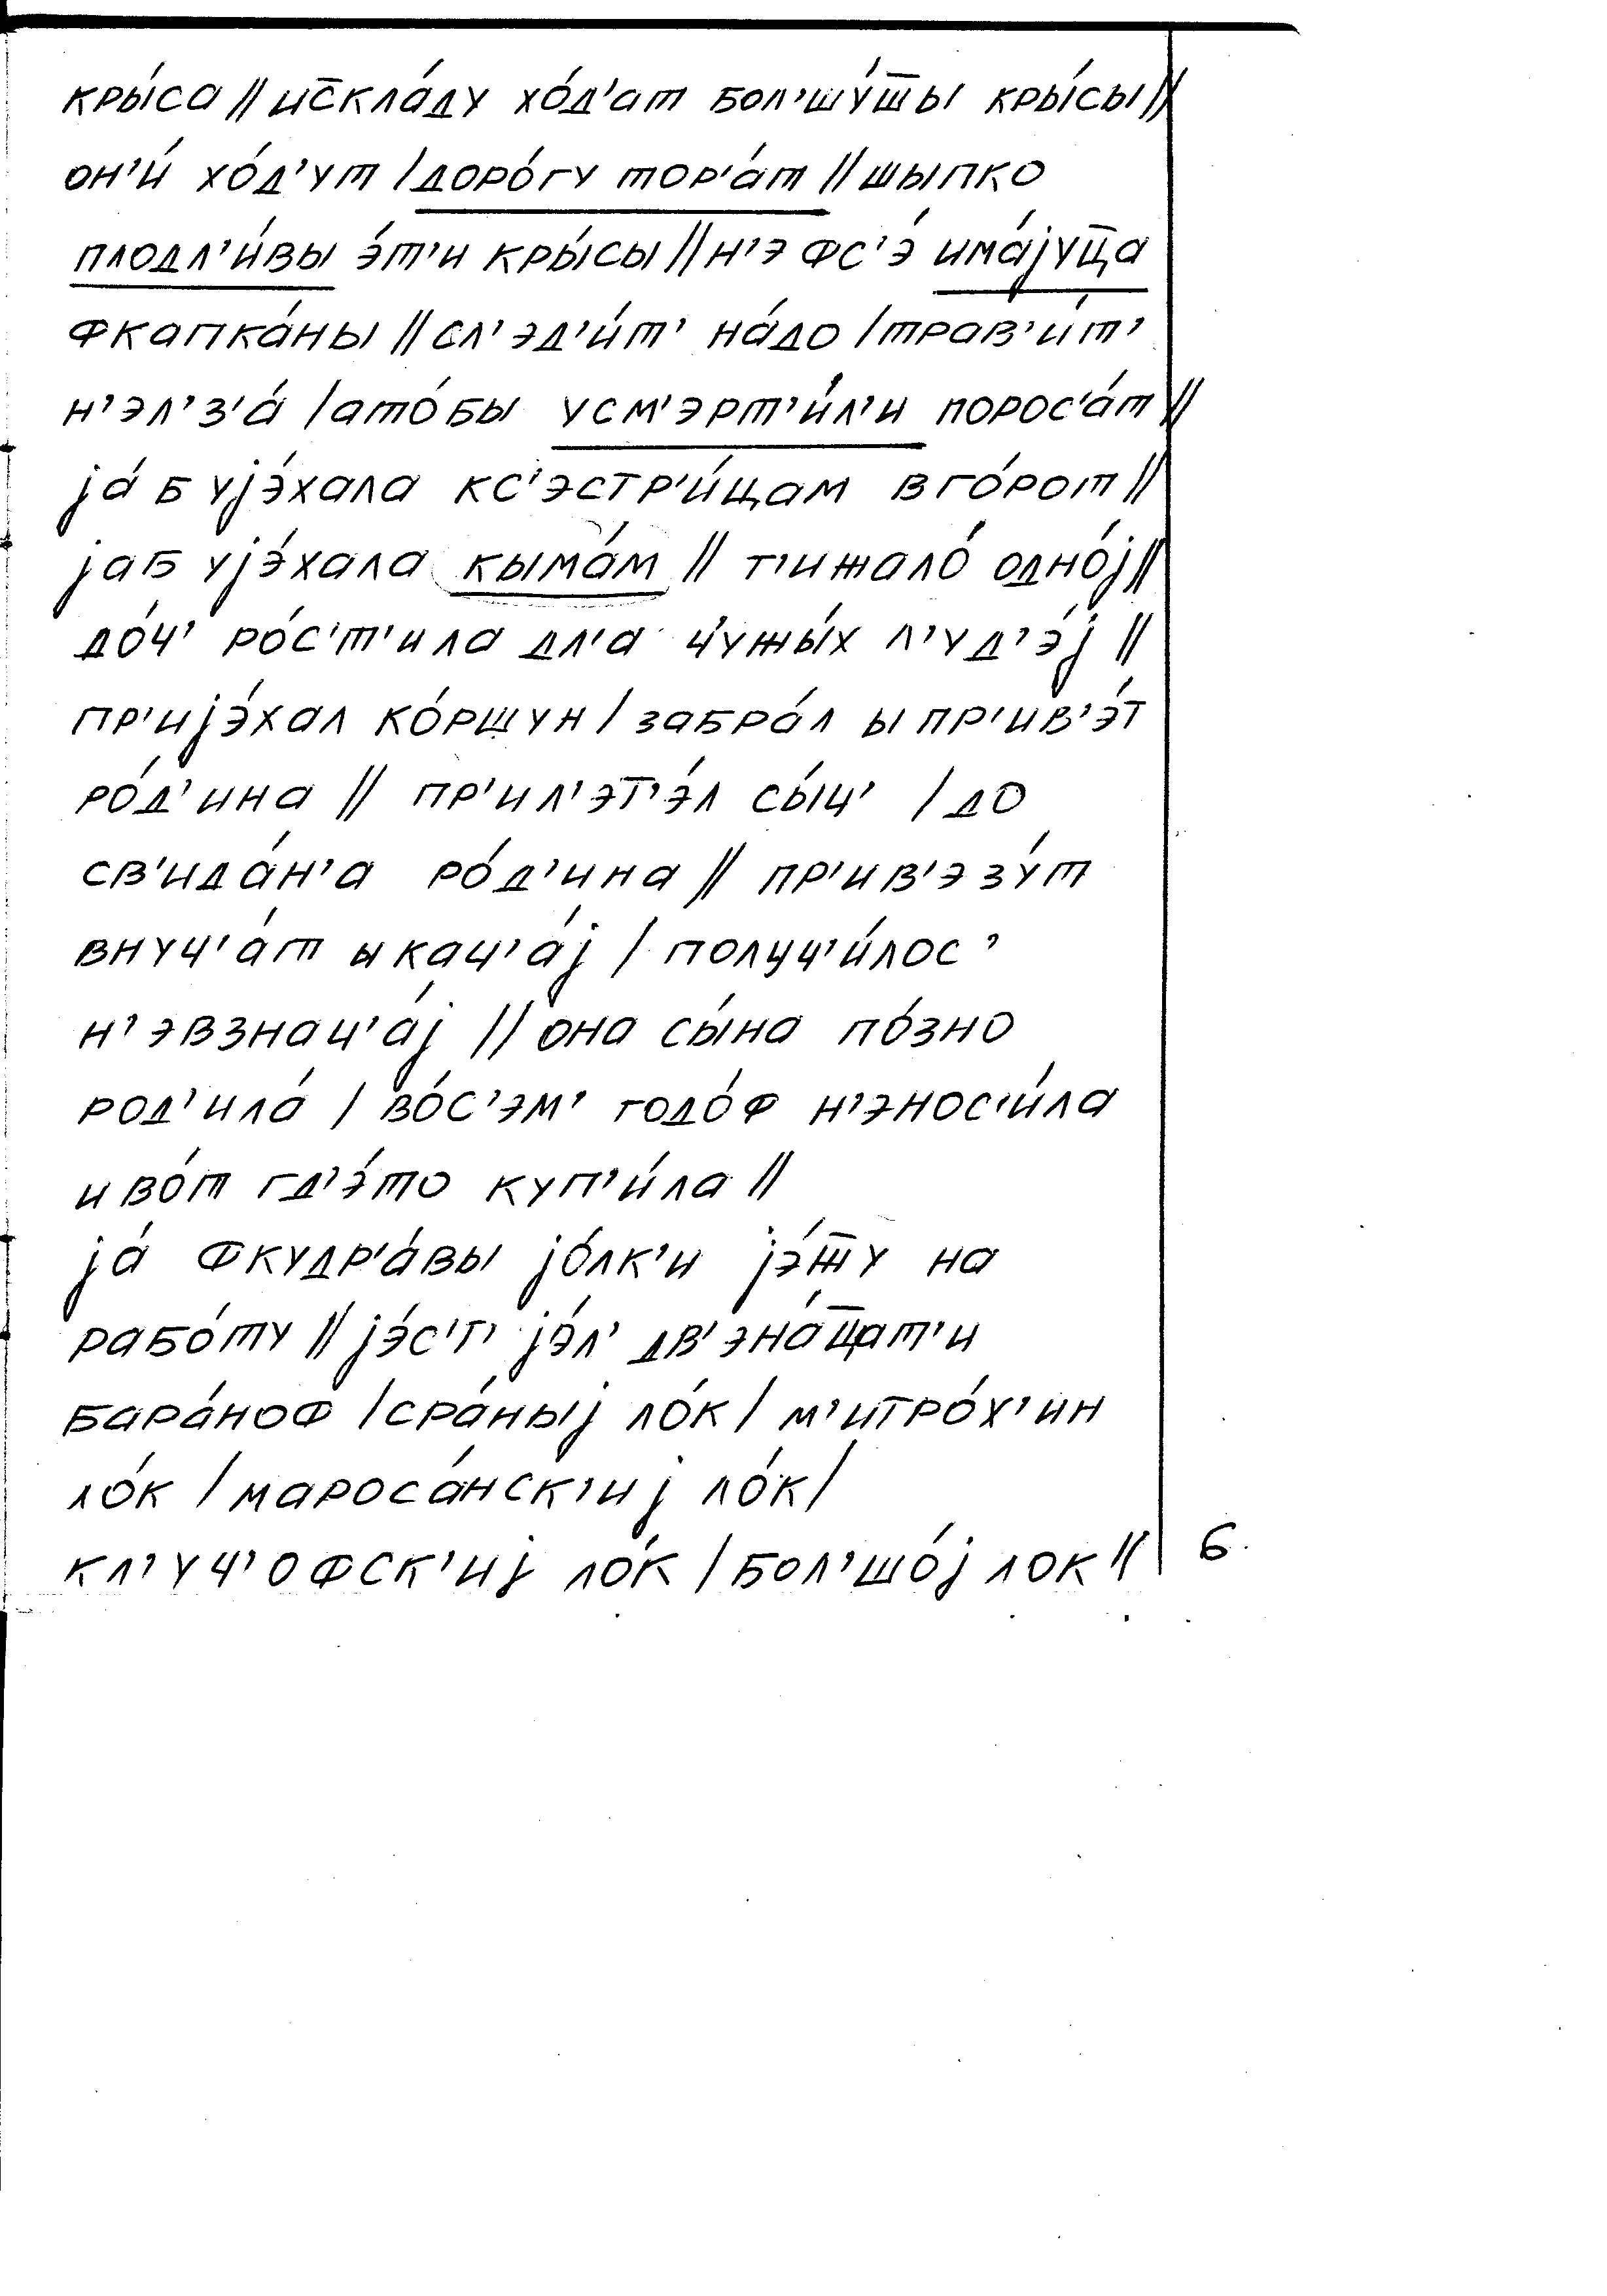 кры́са // ис̄кла́ду хо́д'ат бол'шу́ш̄ы кры́сы //
он'и́ хо́д'ут / доро́гу тор'а́т // шыпко
плодл'и́вы э́т'и кры́сы // н'э фс'э́ има́јуц̄а
фкапка́ны // сл'эд'и́т' на́до / трав'и́т'
н'эл'з'а́ / ато́бы усм'эрт'и́л'и порос'а́т //
ја́ б ују́э́хала кс'эстр'и́цам в го́рот //
јаб ујэ́хала кыма́м // т'ижало́ одно́ј //
до́ч' ро́с'т'ила дл'а ч'ужы́х л'уд'э́ј //
пр'ијэ́хал ко́ршун / забра́л ы пр'ив'э́т
ро́д'ина // пр'ил'эт'э́л сы́ч' / до
св'ида́н'а ро́д'ина // пр'ив'эзу́т
внуч'а́т ы кач'а́ј / получ'и́лос'
н'эвзнач'а́ј // она сы́на по́зно
род'ила́ / во́с'эм' годо́ф н'энос'и́ла
и во́т гд'э́то куп'и́ла //
ја́ фкудр'а́вы јо́лк'и јэ́ш̄у на
рабо́ту // јэ́с'т' јэ́л' дв'эна́ц̄ат'и
бара́ноф / сра́ныј ло́к / м'итро́х'ин
ло́к / мароса́нск'иј ло́к /
кл'уч'офск'иј ло́к / бол'шо́ј лок //
6.